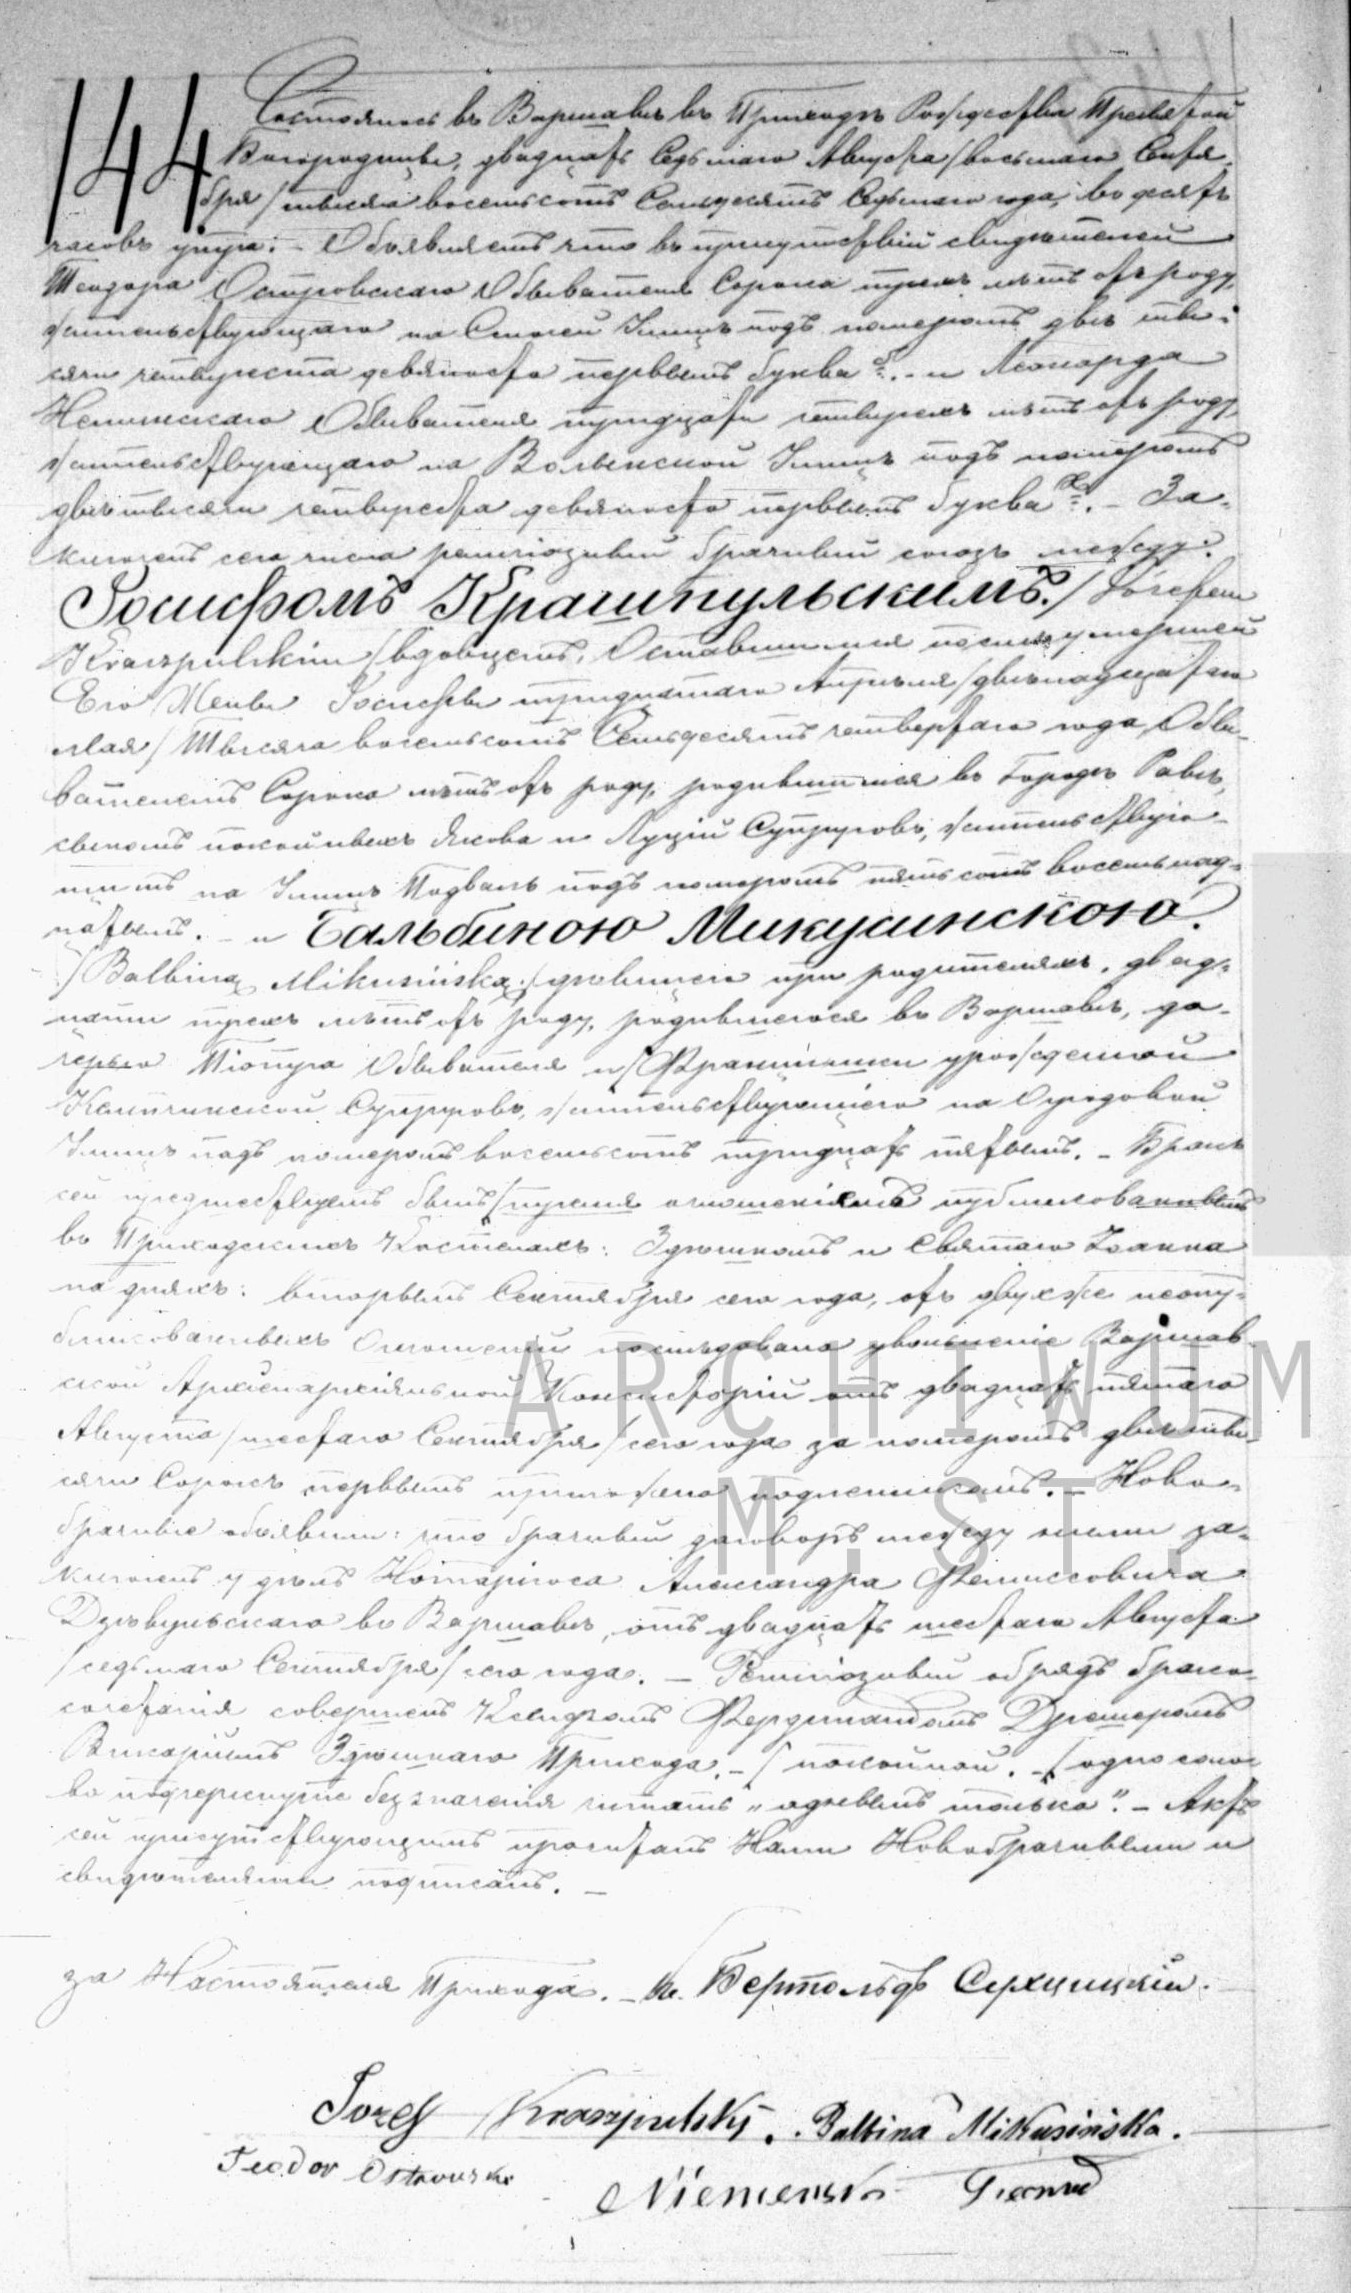 144
Состоялось въ Варшавѣ въ Приходѣ Рождества Пресвятой
Богородицы, двадцать Седьмаго Августа /восьмаго Сентя-
бря/ тысяча восемьсотъ Семьдесятъ Седьмаго года, въ десять
часовъ утра. – Объявляемъ что въ присутствіи свидѣтелей
Теодора Островскаго Обывателя Сорока трехъ лѣтъ отъ роду,
жительствующаго на Улицѣ подъ номеромъ двѣ ты-
сячи четыреста девяносто первымъ буква – и Леонарда
Обывателя тридцати четырехъ лѣтъ отъ роду,
жительствующаго на Волынской Улицѣ подъ номеромъ
двѣ тысячи четыреста девяносто первымъ буква – За-
ключенъ сего числа религіозный брачный союзъ между:
Іосифомъ Крашпульскимъ /Józefem
Kraszpulskim/ вдовцемъ, Оставшимся послѣ умершей
Его Жены Іосифы тридцатаго Апрѣля /двѣнадцатаго
Мая/ Тысяча восемьсотъ Семьдесятъ четвертаго года, Обы-
вателемъ Сорока лѣтъ отъ роду, родившимся въ Городѣ Равѣ,
сыномъ покойныхъ Якова и Луціи Супруговъ, жительствую-
щимъ на Улицѣ Подваль подъ номеромъ пятьсотъ восемьнад-
цатымъ. – и Бальбиною Микусинскою.
/Balbiną Mikusińską/ дѣвицею при родителяхъ, двад-
цати трехъ лѣтъ отъ роду, родившеюся въ Варшавѣ, до-
черью Піотра Обывателя и Францишки урожденной
Супруговъ, жительствующею на Огродовой
Улицѣ подъ номеромъ восемьсотъ тридцать пятымъ. – Бракъ
сей предшествуемъ былъ /тремя оглашеніемъ публикованнымъ
въ Приходскихъ Костелахъ: Здѣшномъ и Святаго Іоанна
на дняхъ: вторымъ Сентября сего года, отъ двухъ же неопу-
бликованныхъ Оглашеній послѣдовало увольненіе Варшав-
ской Архіепархіяльной Консисторіи отъ двадцать пятаго
Августа /шестаго Сентября/ сего года за номеромъ двѣ ты-
сячи Сорокъ первымъ приложено подлинникомъ. – Ново-
брачные объявили: что брачный договоръ между ними за-
ключенъ у дѣлъ Нотаріюса Александра Феликсовича
въ Варшавѣ, отъ двадцать шестаго Августа
/седьмаго Сентября/ сего года. – Религіозный обрядъ брако-
сочетанія совершенъ Ксендзомъ Фердинандомъ Дрешеромъ
Викаріемъ Здѣшнаго Прихода. – / покойной. – / одно сло-
во подчеркнутое безъ значенія читать „однымъ только“. – Актъ
сей присутствующимъ прочитанъ Нами Новобрачными и
свидѣтелями подписанъ. –
за Настоятеля Прихода. – Кс. Бертольдъ
Józef Kraszpulski. Balbina Mikusińska.
Teodor Ostrowski
ARCHIWUM
M. ST.